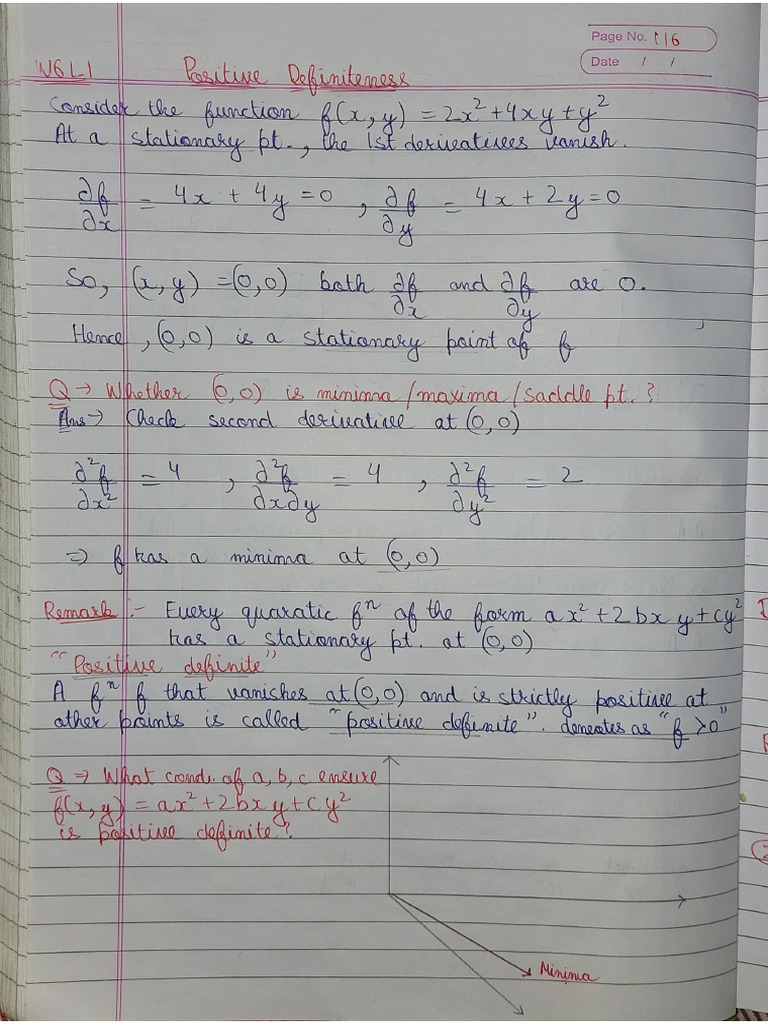 Page No. 116
Date / /
W6L1 Positive Definiteness
Consider the function f(x, y) = 2x² + 4xy + y²
At a stationary pt., the 1st derivatives vanish.
∂f/∂x = 4x + 4y = 0 , ∂f/∂y = 4x + 2y = 0
So, (x, y) = (0,0) both ∂f/∂x and ∂f/∂y are 0.
Hence, (0,0) is a stationary point of f
Q → Whether (0,0) is minima/maxima/saddle pt.?
Ans → Check second derivative at (0,0)
∂²f/∂x² = 4 , ∂²f/∂x∂y = 4 , ∂²f/∂y² = 2
⇒ f has a minima at (0,0)
Remark :- Every quaratic fⁿ of the form ax² + 2bxy + cy²
has a stationary pt. at (0,0)
"Positive definite"
A fⁿ f that vanishes at (0,0) and is strictly positive at
other points is called "positive definite". denoates as "f > 0"
Q → What cond. of a, b, c ensure
f(x, y) = ax² + 2bxy + cy²
is positive definite?
Minima